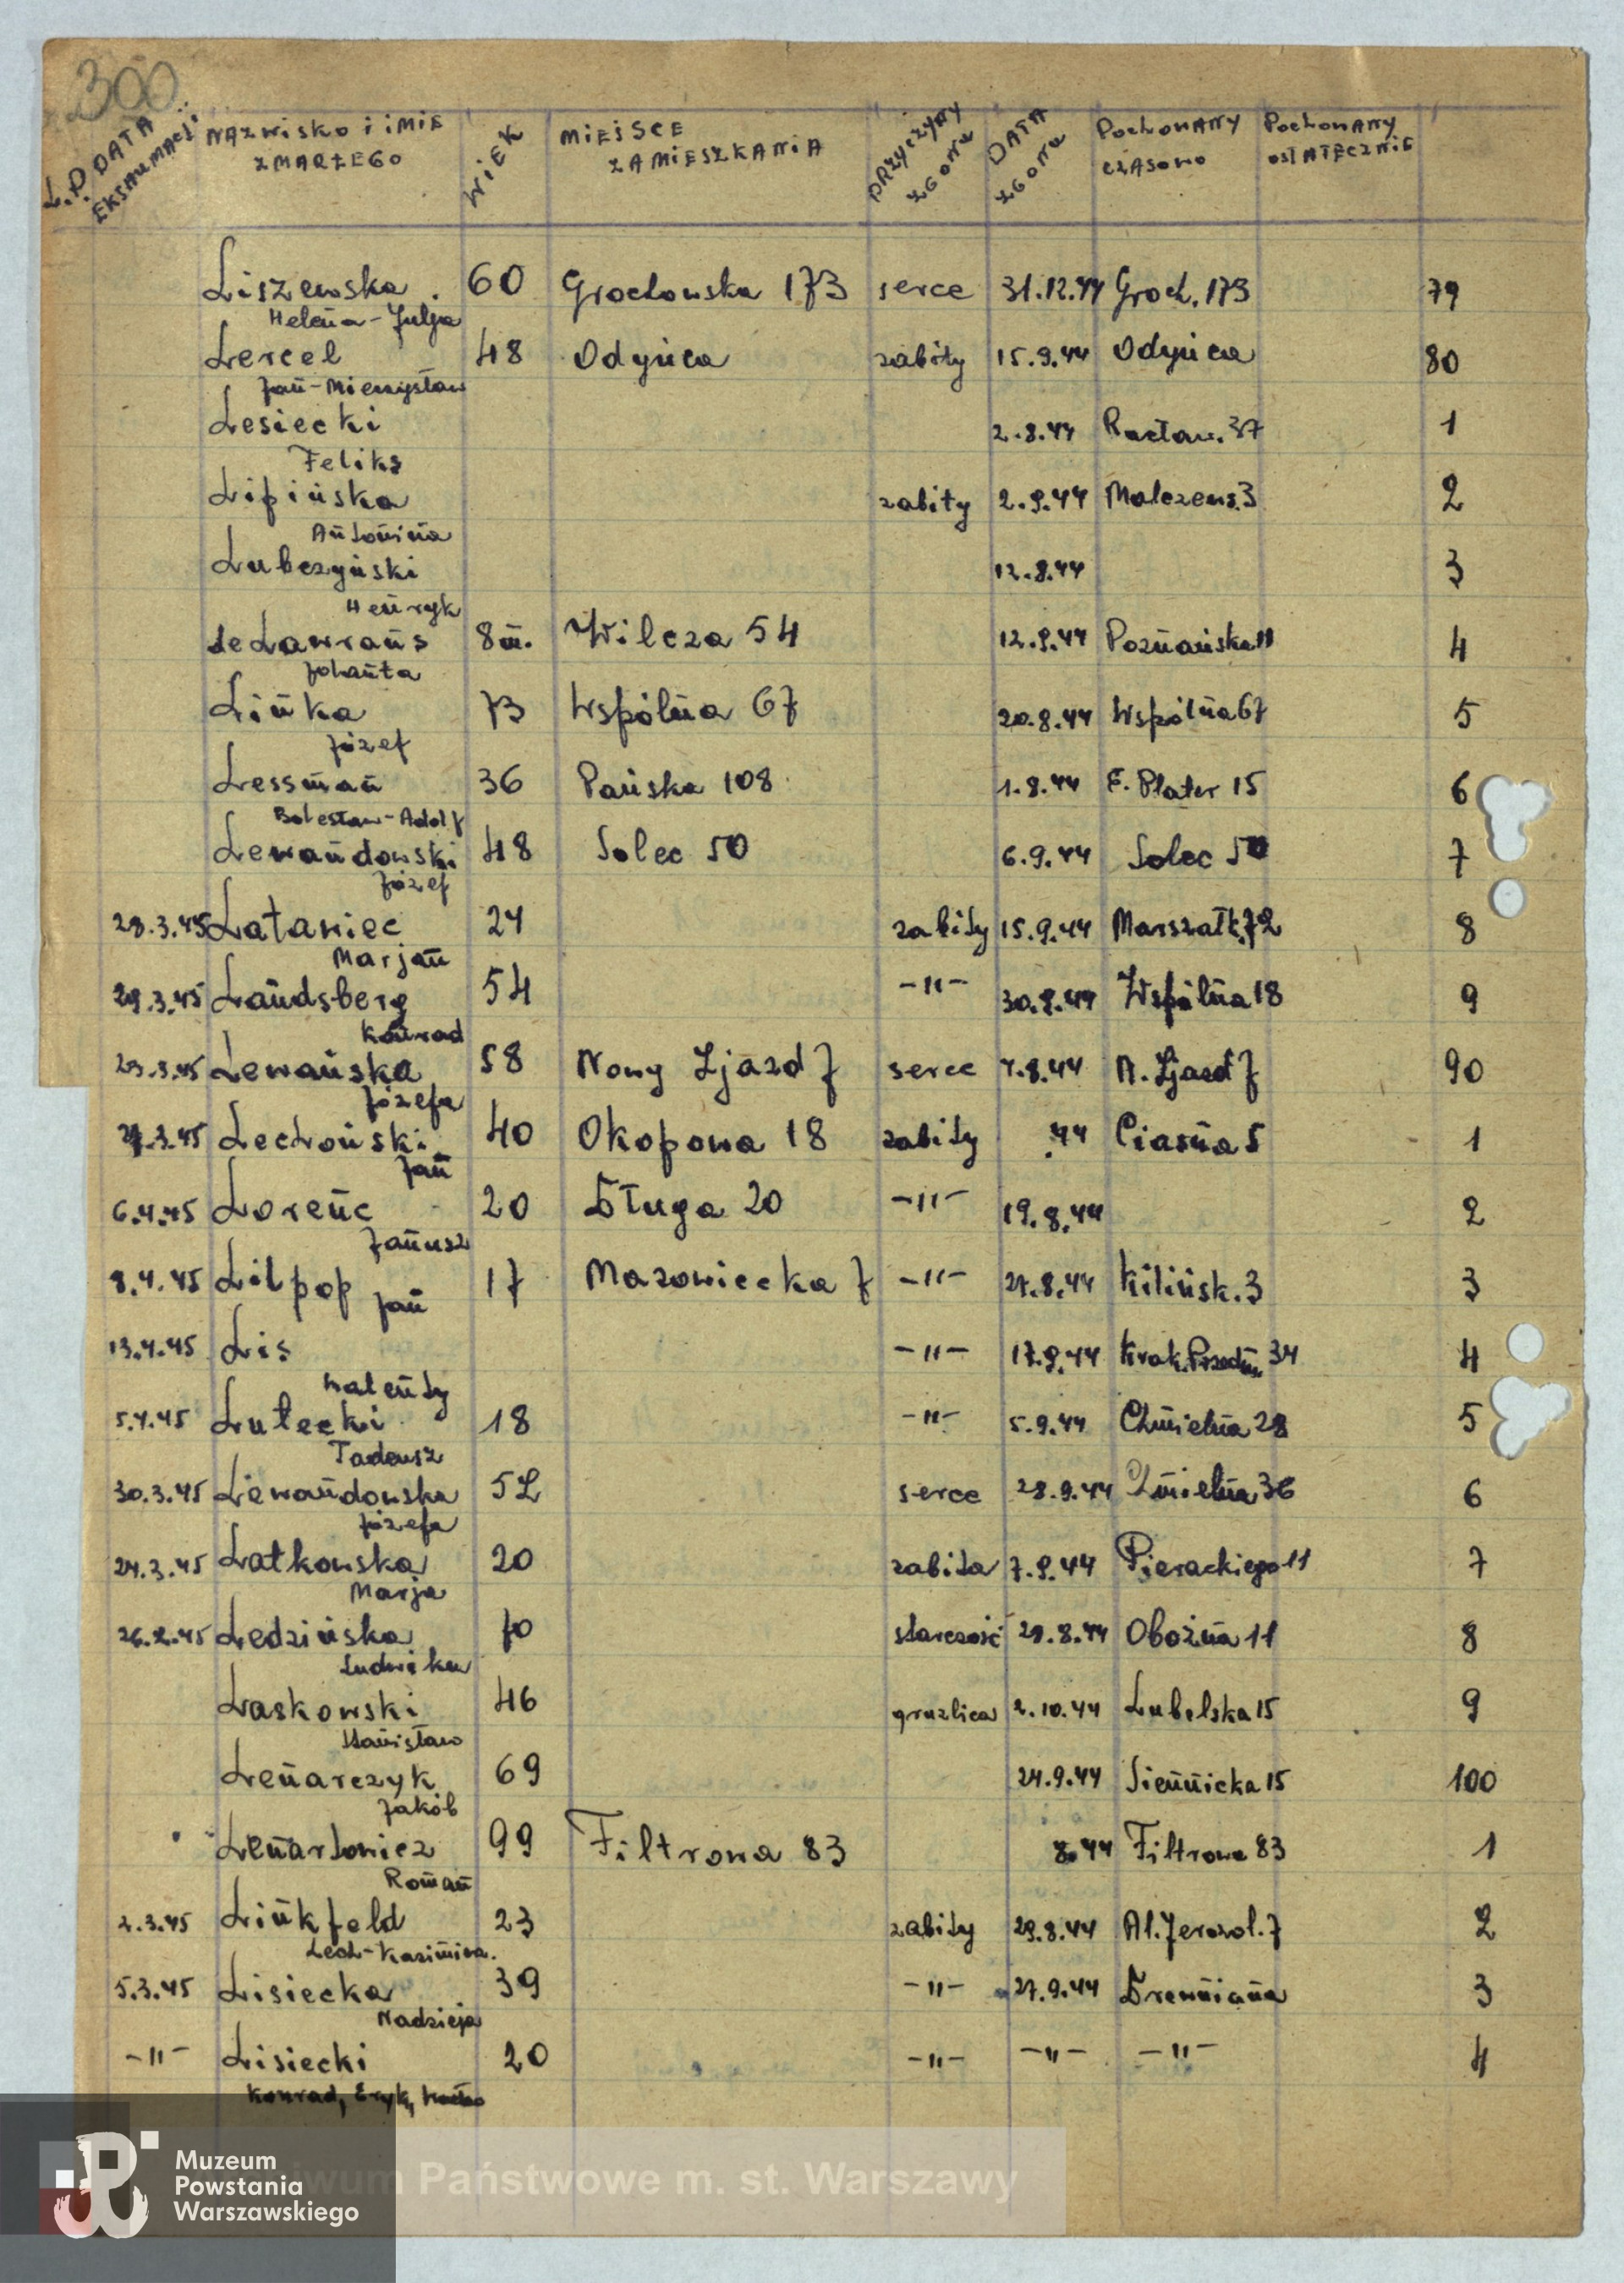 300
L.P. DATA EKSHUMACJI NAZWISKO i iMiE ZMARŁEGO WiEK MiEJSCE ZAMiESZKANiA PRZYCZYNY ZGONU DATA ZGONU POCHOWANY CZASOWO POCHOWANY OSTATECZNiE
Liszewska 60 Grochowska 173 serce 31.12.44 Groch. 173 79
Helena-Julja
Lercel 48 Odyńca zabity 15.9.44 Odyńca 80
Jan-Mieczysław
Lesiecki 2.8.44 Racław. 37 1
Feliks
Lipińska zabity 2.9.44 Malczews. 3 2
Antonina
Lubczyński 12.8.44 3
Henryk
de Lawrans 8 m. Wilcza 54 12.9.44 Poznańska 11 4
Johanta
Linka 73 Wspólna 67 20.8.44 Wspólna 67 5
Józef
Lessman 36 Pańska 108 1.8.44 E. Plater 15 6
Bolesław-Adolf
Lewandowski 48 Solec 50 6.9.44 Solec 50 7
Józef
28.3.45 Lataniec 24 zabity 15.9.44 Marszałk. 72 8
Marjan
29.3.45 Landsberg 54 -"- 30.8.44 Wspólna 18 9
Konrad
23.3.45 Lewańska 58 Nowy Zjazd 7 serce 7.8.44 N. Zjazd 7 90
Józefa
27.3.45 Lechoński 40 Okopowa 18 zabity .44 Ciasna 5 1
Jan
6.4.45 Lorenc 20 Długa 20 -"- 19.8.44 2
Janusz
8.4.45 Lilpop 17 Mazowiecka 7 -"- 27.8.44 Kilińsk. 3 3
Jan
13.4.45 Lis -"- 17.9.44 Krak. Przedm. 34 4
Walenty
5.4.45 Lutecki 18 -"- 5.9.44 Chmielna 28 5
Tadeusz
30.3.45 Lewandowska 52 serce 28.9.44 Chmielna 36 6
Józefa
24.3.45 Latkowska 20 zabita 7.9.44 Pierackiego 11 7
Marja
26.2.45 Ledzińska 70 starczość 29.8.44 Oboźna 11 8
Ludwika
Laskowski 46 gruźlica 2.10.44 Lubelska 15 9
Stanisław
Lenarczyk 69 24.9.44 Siennicka 15 100
Jakób
Lenartowicz 99 Filtrowa 83 8.44 Filtrowa 83 1
Roman
2.3.45 Linkfeld 23 zabity 29.8.44 Al. Jerozol. 7 2
Lech-Kazimierz.
5.3.45 Lisiecka 39 -"- 27.9.44 Drewniana 3
Nadzieja
-"- Lisiecki 20 -"- -"- -"- 4
Konrad, Eryk,
Muzeum
Powstania
Warszawskiego
iwum Państwowe m. st. Warszawy